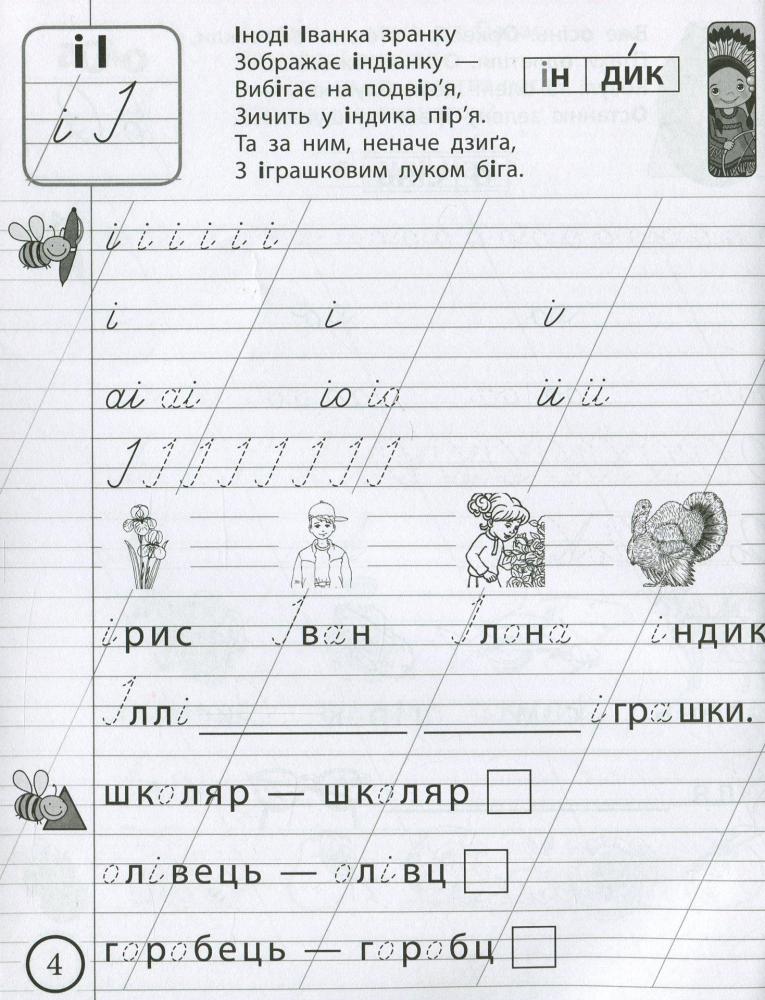 і І
і І
Іноді Іванка зранку
Зображає індіанку —
Вибігає на подвір’я,
Зичить у індика пір’я.
Та за ним, неначе дзиґа,
З іграшковим луком біга.
ін ди́к
і і і і і і
і і і
аі аі іо іо іі іі
І І І І І І І
ірис Іван Ілона індик
Іллі ____ ____ іграшки.
школяр — школяр
олівець — олівц
горобець — горобц
4